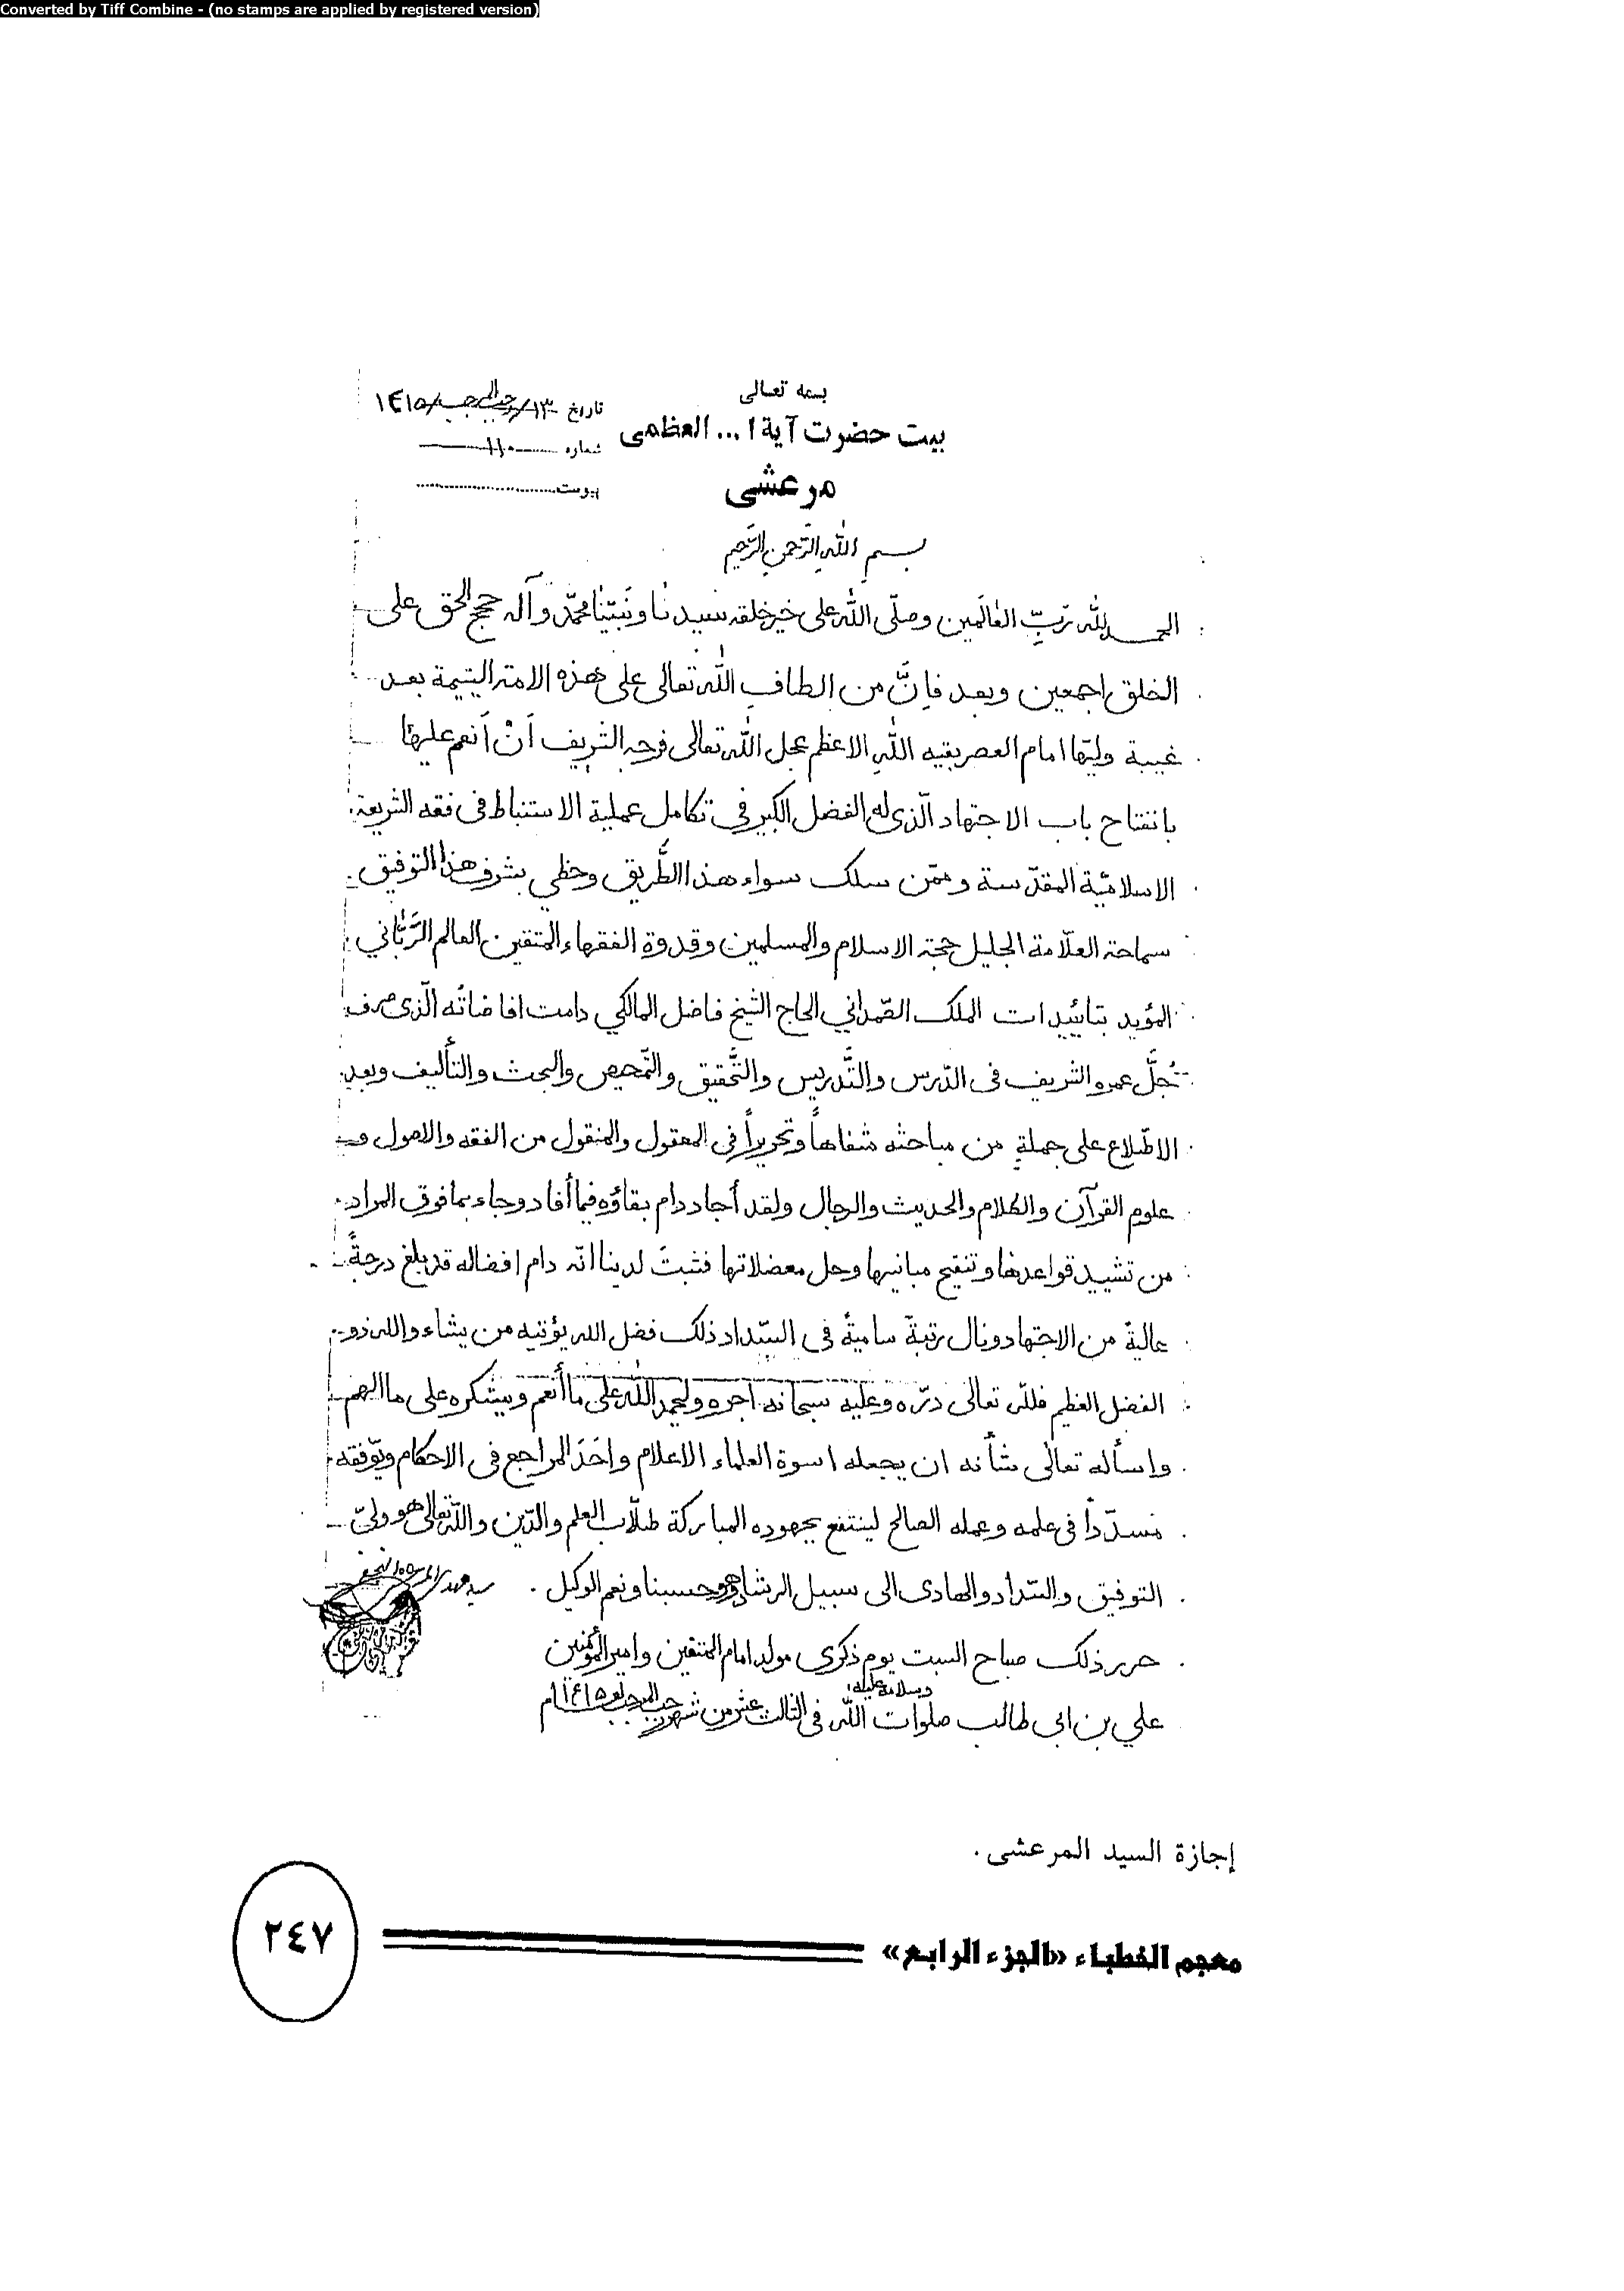 Converted by Tiff Combine - (no stamps are applied by registered version)
بسمه تعالى
بيت حضرت آية ا... العظمى
مرعشى
تاريخ ١٣/رجب المرجب/١٤١٥
شماره ١١٠
پيوست
بسم الله الرّحمن الرّحيم
الحمد لله ربِّ العالمين وصلّى الله على خير خلقه سيدنا ونبيّنا محمّد وآله حجج الحق على
الخلق اجمعين وبعد فإنَّ من الطاف الله تعالى على هذه الامة اليتيمة بعد
غيبة وليّها امام العصر بقيه الله الاعظم عجل الله تعالى فرجه الشريف أنْ أنعم عليها
بانفتاح باب الاجتهاد الّذى له الفضل الكبير فى تكامل عملية الاستنباط فى فقه الشريعة
الاسلاميّة المقدّسة وممّن سلك سواء هذا الطَّريق وحظي بشرف هذا التوفيق
سماحة العلّامة الجليل حجة الاسلام والمسلمين وقدوة الفقهاء المتقين العالم الرَّبّاني
المؤيد بتأييدات الملك الصّمداني الحاج الشيخ فاضل المالكي دامت افاضاته الّذى صرف
جُلَّ عمره الشريف فى الدّرس والتَّدريس والتَّحقيق والتّمحيص والبحث والتأليف وبعد
الاطّلاع على جملةٍ من مباحثه شفاهاً وتحريراً فى المعقول والمنقول من الفقه والاصول و
علوم القرآن والكلام والحديث والرجال ولقد أجاد دام بقاؤه فيما أفاد وجاء بما فوق المراد
من تشييد قواعدها وتنقيح مبانيها وحل معضلاتها فثبتَ لدينا انّه دام افضاله قد بلغ درجةً
عاليةً من الاجتهاد ونال رتبةً ساميةً فى السّداد ذلك فضل الله يؤتيه من يشاء والله ذو
الفضل العظيم فللّه تعالى درّه وعليه سبحانه اجره وليحمد الله على ما أنعم ويشكره على ما الهم
واسأله تعالى شأنه ان يجعله اسوة العلماء الاعلام واحَدَ المراجع فى الاحكام ويوّفقه
مسدّداً فى علمه وعمله الصالح لينتفع بجهوده المباركة طلّاب العلم والدّين والله تعالى هو وليّ
التوفيق والسّداد والهادى الى سبيل الرشاد وهو حسبنا ونعم الوكيل .
سيد مهدى المرعشى النجفي
حرر ذلك صباح السبت يوم ذكرى مولد امام المتقين وامير المؤمنين
علي بن ابى طالب صلوات الله وسلامه عليه فى الثالث عشر من شهر رجب المرجب لعام ١٤١٥
إجازة السيد المرعشى .
معجم الخطباء «الجزء الرابع»
٢٤٧